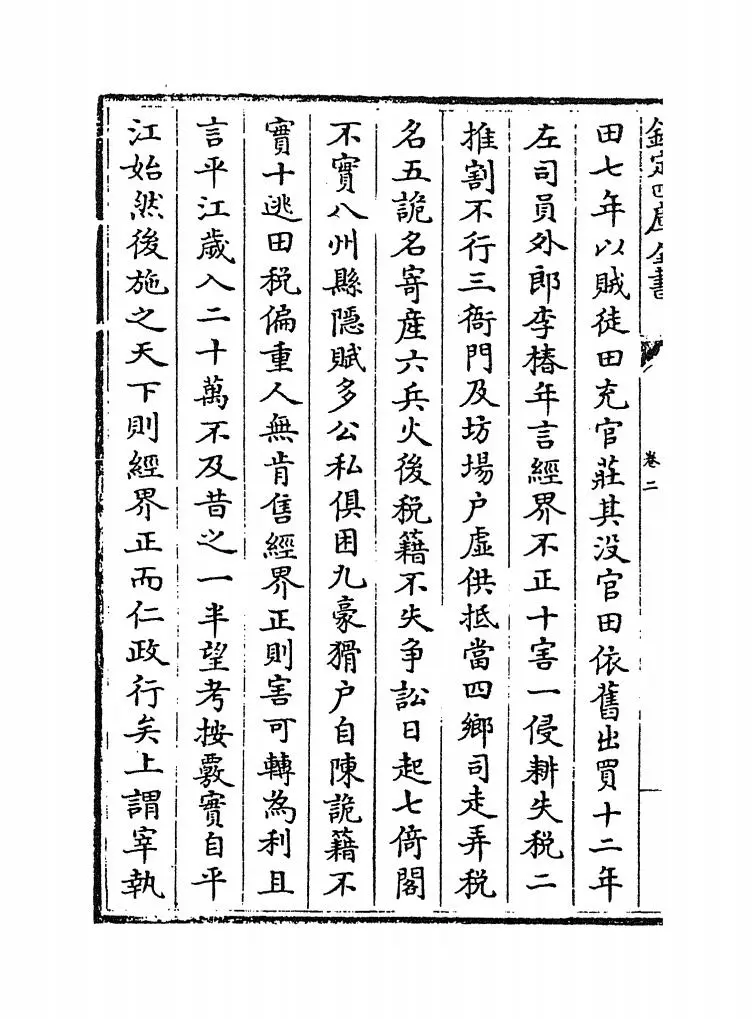 欽定四庫全書
卷二
田七年以賊徒田充官莊其没官田依舊出買十二年
左司員外郎李椿年言經界不正十害一侵耕失税二
推割不行三衙門及坊場户虚供抵當四鄉司走弄税
名五詭名寄產六兵火後税籍不失争訟日起七倚閣
不實八州縣隱賦多公私俱困九豪猾户自陳詭籍不
實十逃田税偏重人無肯售經界正則害可轉為利且
言平江歲入二十萬不及昔之一半望考按覈實自平
江始然後施之天下則經界正而仁政行矣上謂宰執